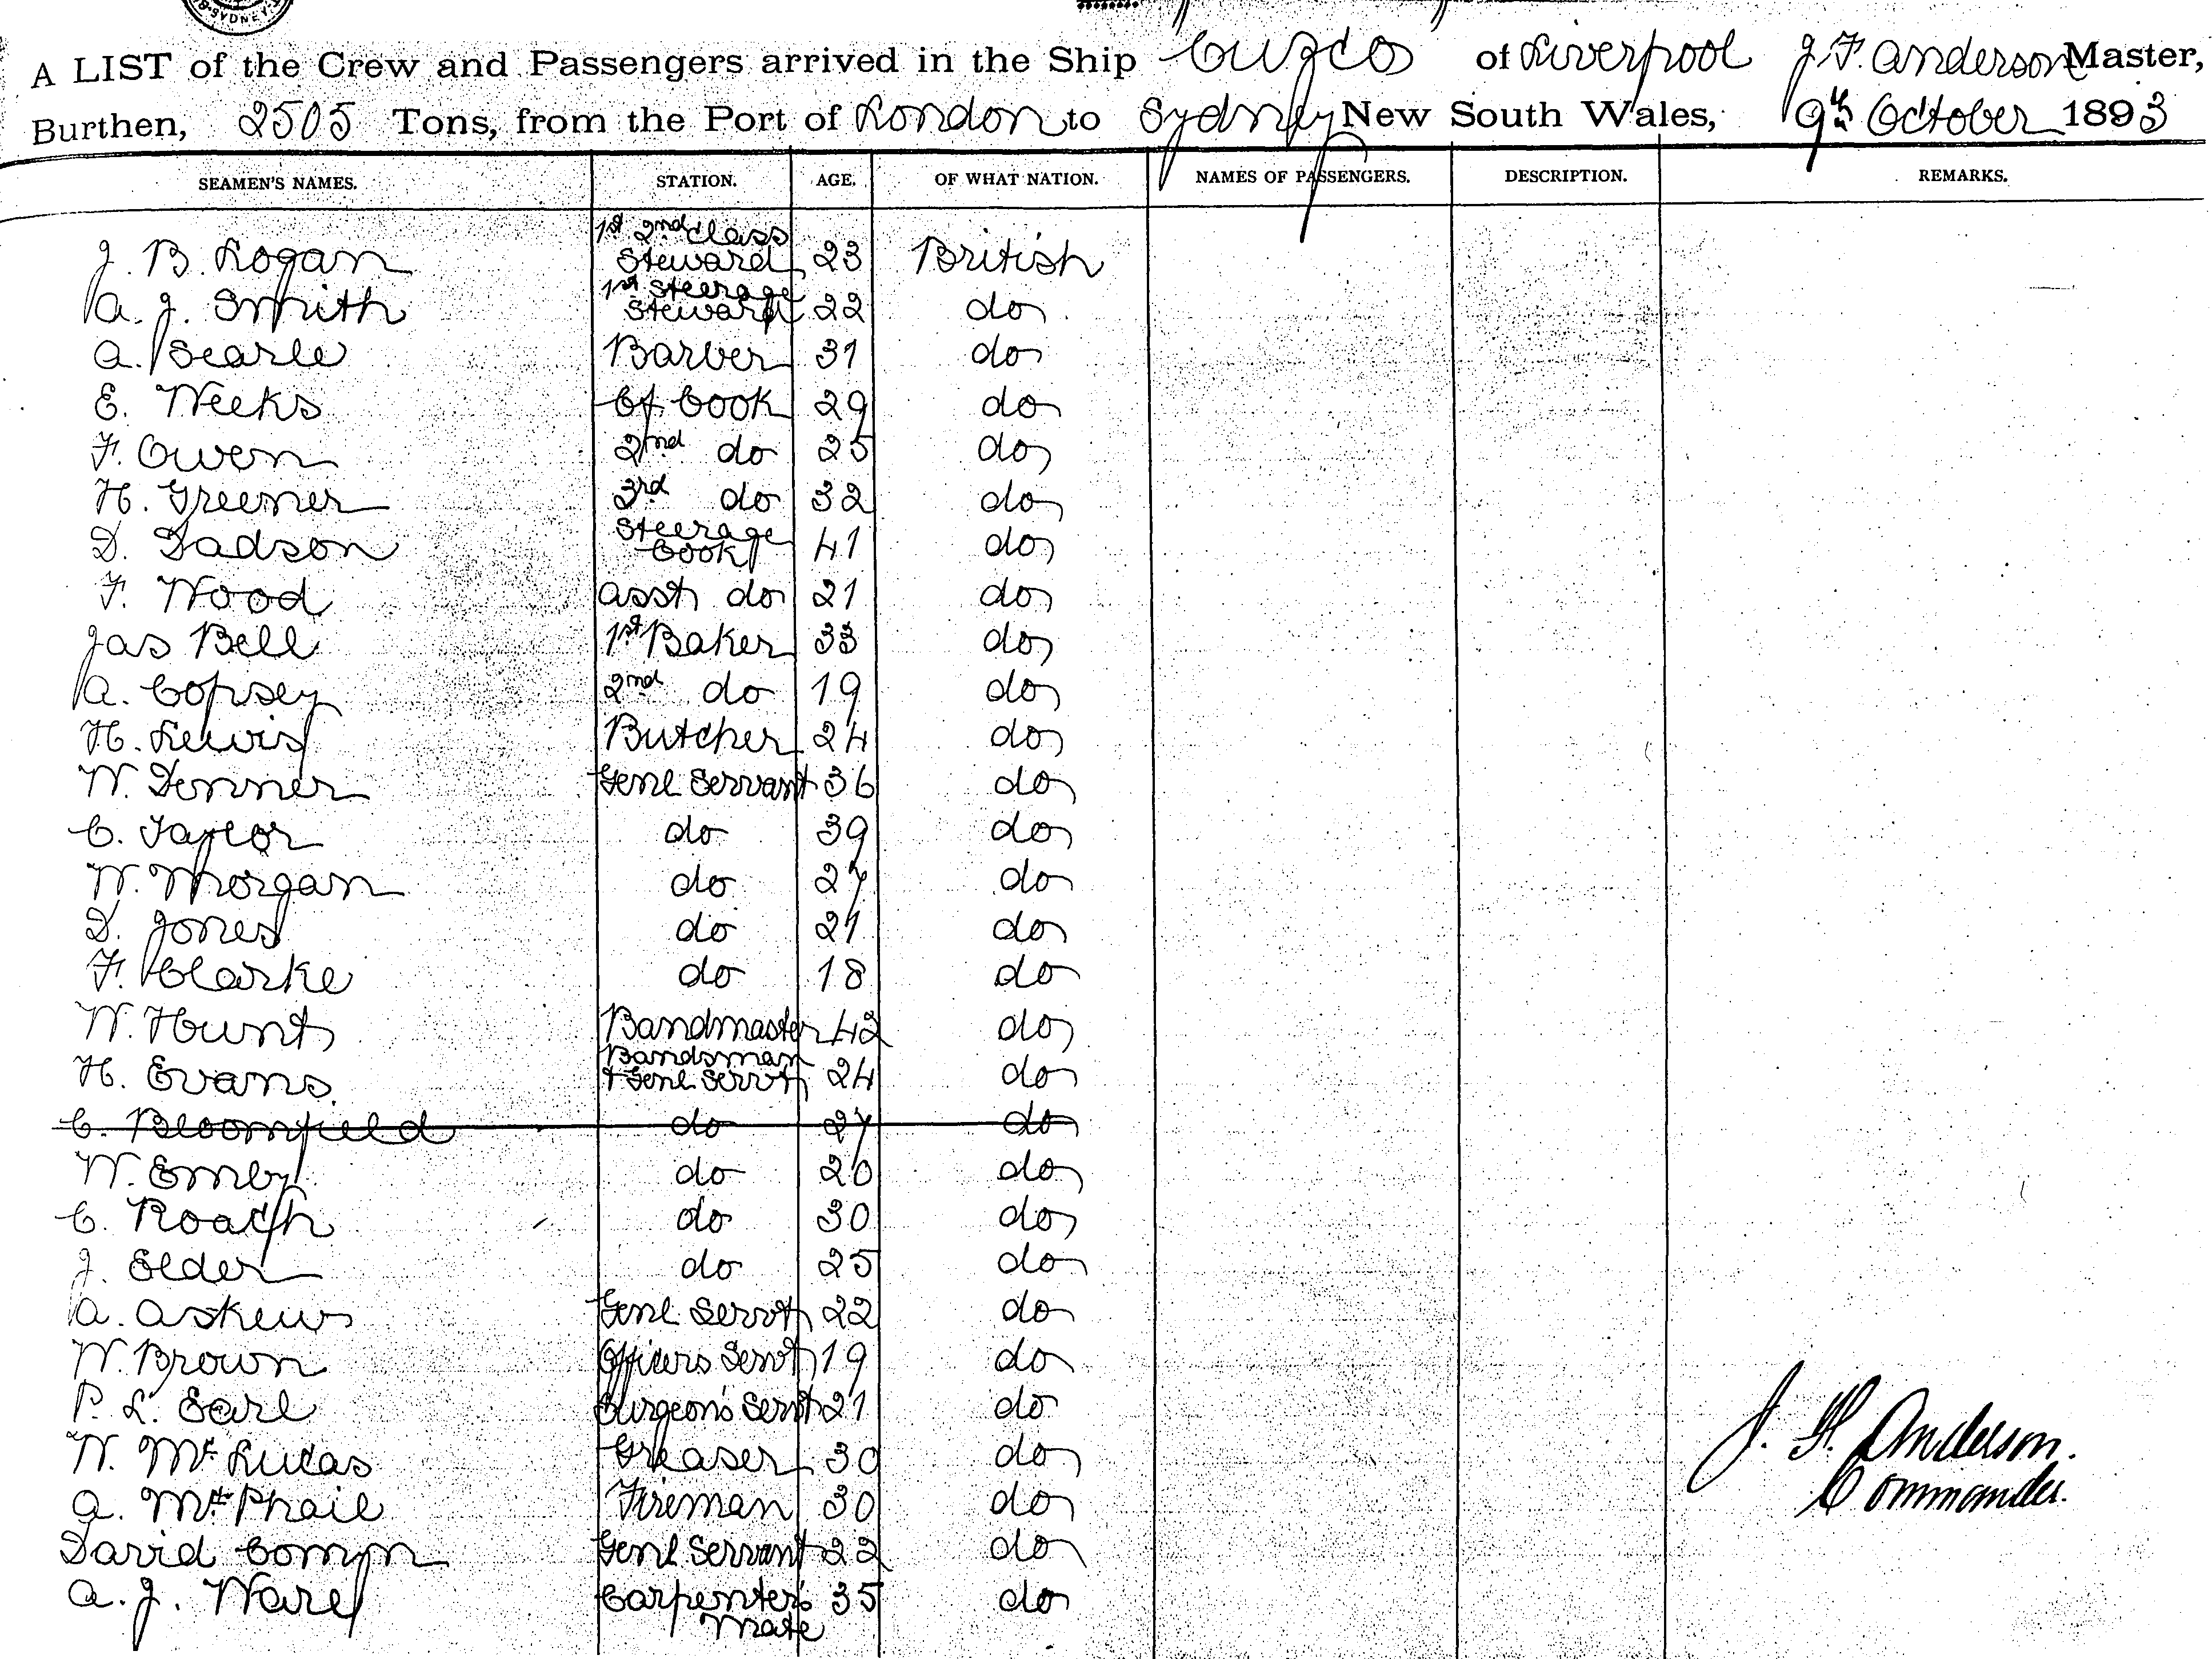 SYDNEY
A LIST of the Crew and Passengers arrived in the Ship "Cuzco" of Liverpool J. F. Anderson Master,
Burthen, 2505 Tons, from the Port of London to Sydney New South Wales, 9th October 1893
SEAMEN'S NAMES. STATION. AGE. OF WHAT NATION. NAMES OF PASSENGERS. DESCRIPTION. REMARKS.
J. B. Logan 1st 2nd class Steward 23 British
A. J. Smith 1st Steerage Steward 22 do
A. Searle Barber 31 do
E. Weeks Cf. Cook 29 do
F. Owen 2nd do 25 do
H. Greener 3rd do 32 do
D. Dadson Steerage Cook 41 do
F. Wood Asst do 21 do
Jas Bell 1st Baker 33 do
A. Copsey 2nd do 19 do
H. Lewis Butcher 24 do
W. Denner Genl Servant 36 do
C. Taylor do 39 do
W. Morgan do 27 do
D. Jones do 21 do
F. Clarke do 18 do
W. Hunt Bandmaster 42 do
H. Evans Bandsman & Genl Servt 24 do
C. Bloomfield do 27 do
W. Emby do 20 do
C. Roach do 30 do
J. Elder do 25 do
A. Askew Genl Servt 22 do
W. Brown Officers Servt 19 do
P. L. Earl Surgeon's Servt 21 do
W. Mc Lucas Greaser 30 do
A. Mc Phail Fireman 30 do
David Comyn Genl Servant 22 do
A. J. Ware Carpenter's Mate 35 do
J. F. Anderson.
Commander.